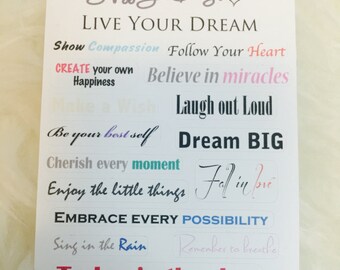 LIVE YOUR DREAM
Show Compassion
Follow Your Heart
CREATE your own
Happiness
Believe in miracles
Make a Wish
Laugh out Loud
Be your best self
Dream BIG
Cherish every moment
Fall in love
Enjoy the little things
EMBRACE EVERY POSSIBILITY
Sing in the Rain
Remember to breathe